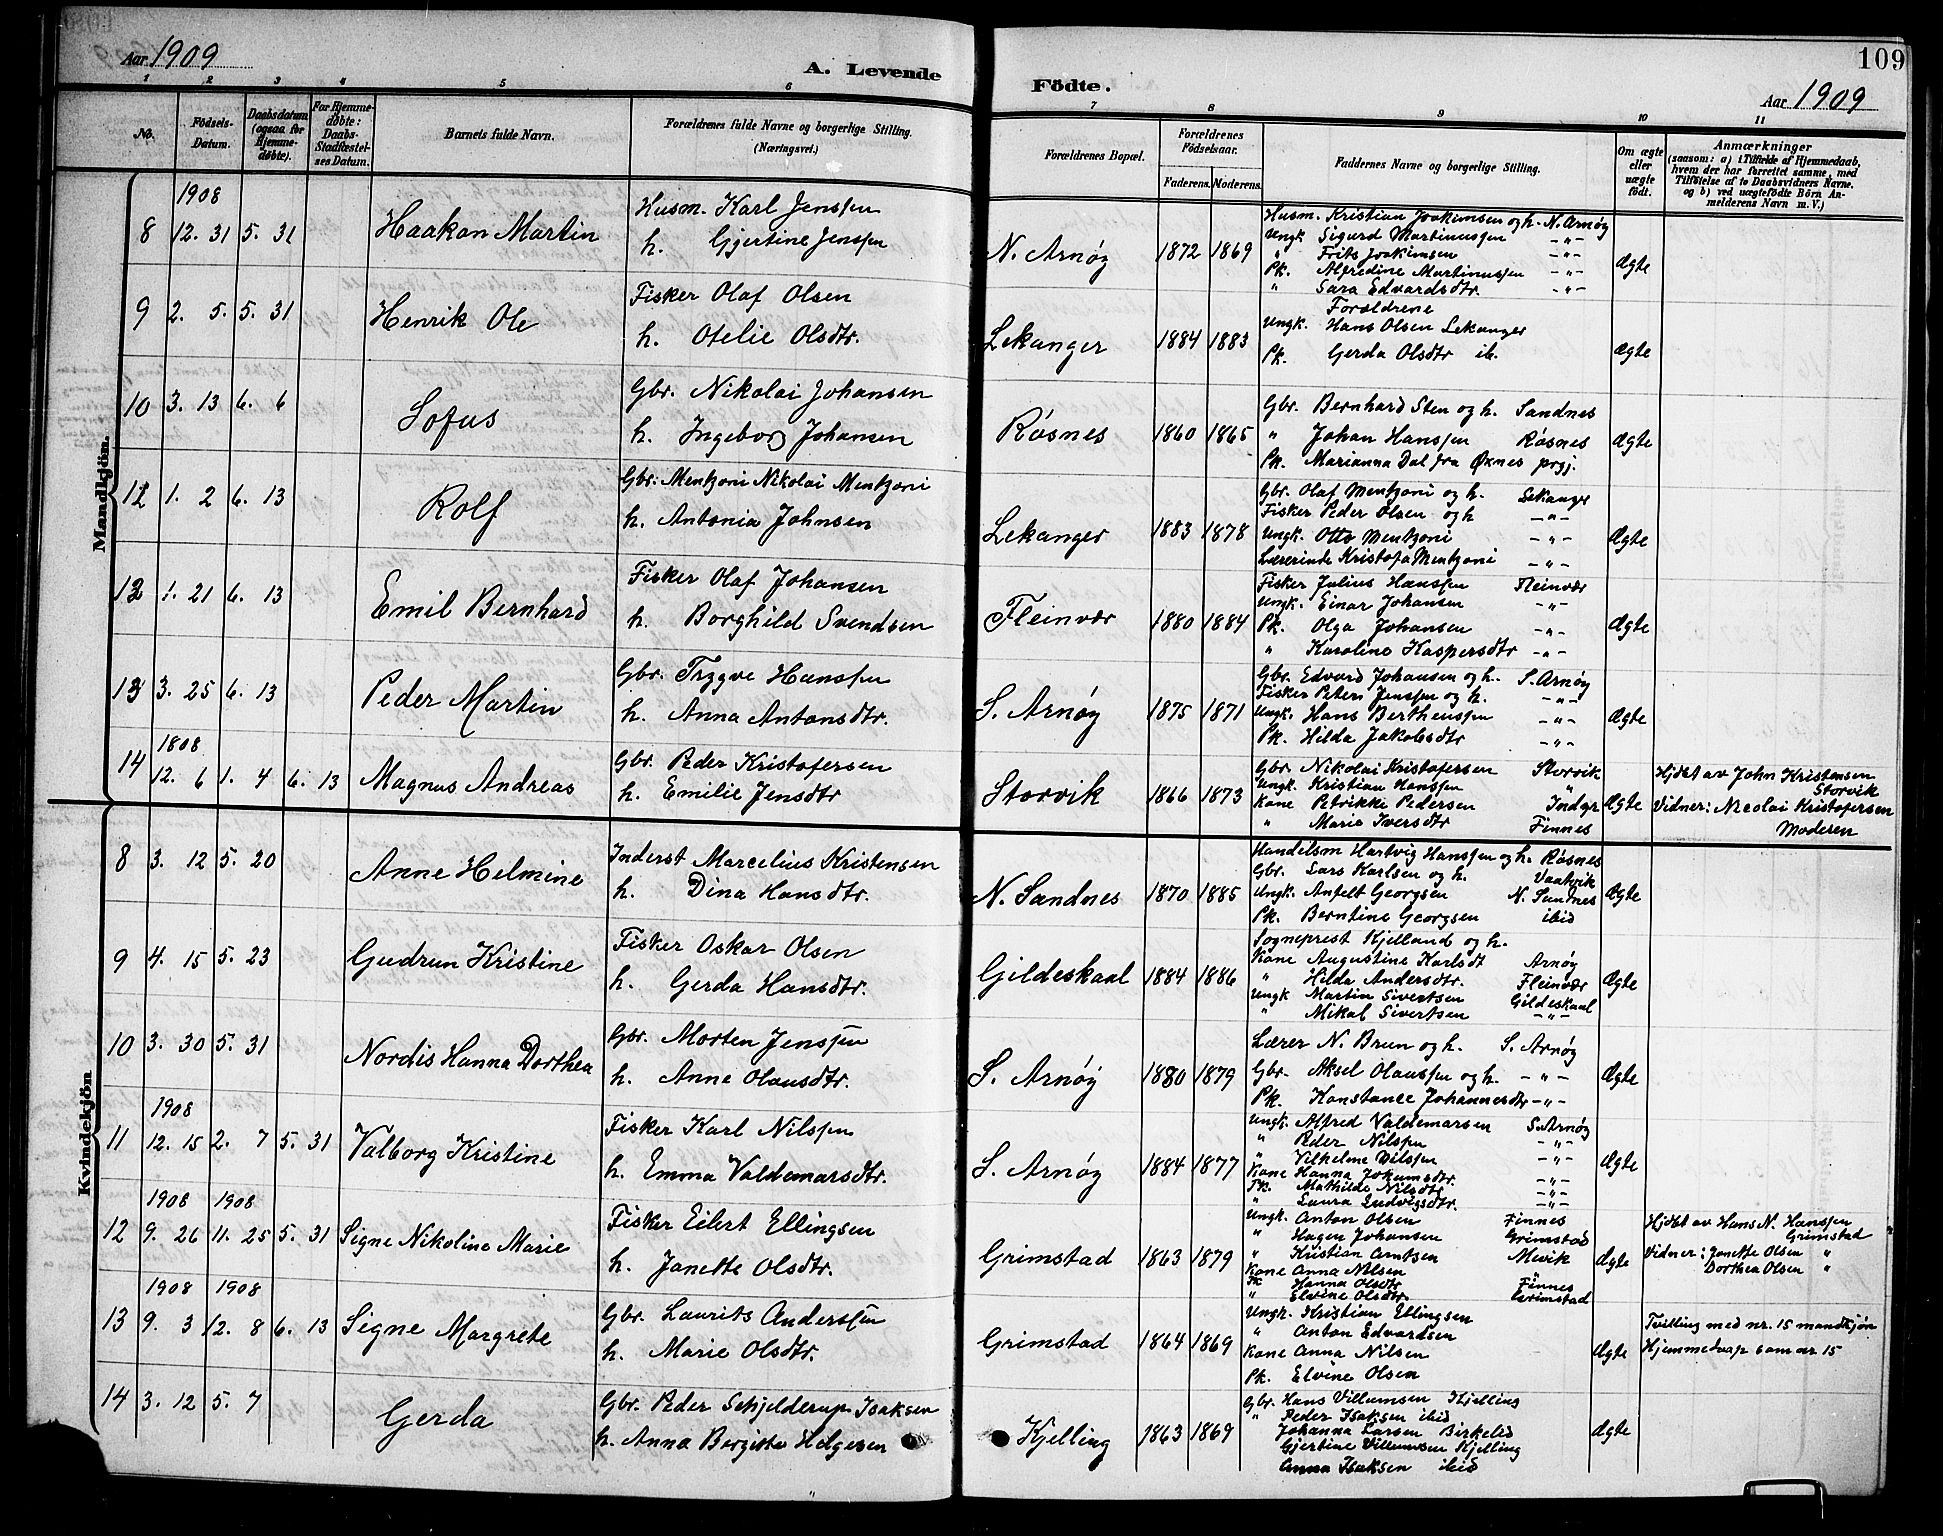 109
Aar 1909
A. Levende
Födte.
Aar 1909
1 2 3 4 5 6 7 8 9 10 11
No. Födsels-Datum. Daabsdatum (ogsaa for Hjemme-døbte). For Hjemme-døbte: Daabs-Stadfæstel-ses Datum. Barnets fulde Navn. Forældrenes fulde Navne og borgerlige Stilling. (Næringsvei.)
Forældrenes Bopæl. Forældrenes Födselsaar. Faderens. Moderens. Faddernes Navne og borgerlige Stilling. Om ægte eller uægte födt. Anmærkninger (saasom: a) i Tilfælde af Hjemmedaab, hvem der har forrettet samme, med Tilföielse af to Daabsvidners Navne. og b) ved uægtefödte Börn An-melderens Navn m. V.)
Mandkjön.
1908
8 12. 31 5. 31 Haakon Martin
Husm. Karl Jenssen
h. Gjertine Jenssen
N. Arnøy 1872 1869
Husm. Kristian Joakimsen og h. N. Arnøy
Ungk. Sigurd Martinussen -"-
" Frits Joakimsen -"-
Pk. Alfredine Martinussen -"-
" Sara Edvardsdtr. -"-
Ægte
9 2. 5. 5. 31 Henrik Ole
Fisker Olaf Olsen
h. Otelie Olsdtr.
Lekanger 1884 1883
Forældrene
Ungk. Hans Olsen Lekanger
Pk. Gerda Olsdtr ib.
Ægte
10 3. 13 6. 6 Sofus
Gbr. Nikolai Johansen
h. Ingeborg Johansen
Røsnes 1860 1865
Gbr. Bernhard Sten og h. Sandnes
" Johan Hanssen Røsnes
Pk. Marianna Dal fra Øknes prgj.
Ægte
11 1. 2 6. 13 Rolf
Gbr. Mentzoni Nikolai Mentzoni
h. Antonia Johnsen
Lekanger 1883 1878
Gbr. Olaf Mentzoni og h. Lekanger
Fisker Peder Olsen og h -"-
Ungk. Otto Mentzoni -"-
Lærerinde Kristofa Mentzoni -"-
Ægte
12 1. 21 6. 13 Emil Bernhard
Fisker Olaf Johansen
h. Borghild Svendsen
Fleinvær 1880 1884
Fisker Julius Hanssen Fleinvær
Ungk. Einar Johansen -"-
Pk. Olga Johansen -"-
" Karoline Kaspersdtr -"-
Ægte
13 3. 25 6. 13 Peder Martin
Gbr. Trygve Hanssen
h. Anna Antonsdtr.
S. Arnøy 1875 1871
Gbr. Edvard Johansen og h. S. Arnøy
Fisker Peter Jenssen og h. -"-
Ungk. Hans Berthenssen -"-
Pk. Hilda Jakobsdtr -"-
Ægte
1808
14 12. 6 1. 4 6. 13 Magnus Andreas
Gbr. Peder Kristofersen
h. Emilie Jensdtr
Storvik 1866 1873
Gbr. Nikolai Kristofersen Storvik
Ungk. Kristian Hanssen "
Kone Petrikke Pedersen Indgr
" Marie Iversdtr Finnes
Ægte
Hjdøt av John Kristensen
Storvik
Vidner: Nicolai Kristofersen
Moderen
Kvindekjön
8 3. 12 5. 20 Anne Helmine
Inderst Marcelius Kristensen
h. Dina Hansdtr.
N. Sandnes 1870 1885
Handelsm Hartvig Hanssen og h. Røsnes
Gbr. Lars Karlsen og h. Vaatvik
Ungk. Anfelt Georgsen N. Sundnes
Pk. Berntine Georgsen ibid
Ægte
9 4. 15 5. 23 Gudrun Kristine
Fisker Oskar Olsen
h. Gerda Hansdtr.
Gildeskaal 1884 1886
Sogneprest Kjelland og h.
Kone Augustine Karlsdt Arnøy
" Hilda Andersdtr. Fleinvær
Ungk Martin Sivertsen Gildeskaal
" Mikal Sivertsen -"-
Ægte
10 3. 30 5. 31 Nordis Hanna Dorthea
Gbr. Morten Jenssen
h. Anne Olausdtr.
S. Arnøy 1880 1879
Lærer N. Brun og h. S. Arnøy
Gbr. Aksel Olaussen og h. -"-
Pk. Konstance Johannesdtr -"-
Ægte
1908
11 12. 15 2. 7 5. 31 Valborg Kristine
Fisker Karl Nilssen
h. Emma Valdemarsdtr.
S. Arnøy 1884 1877
Ungk. Alfred Valdemarsen S. Arnøy
" Peder Nilssen -"-
" Vilhelme Nilssen -"-
Kone Hanna Jokumsdtr. -"-
Pk. Mathilde Nilsdtr -"-
" Laura Ludvigsdtr. -"-
Ægte
1908 1908
12 9. 26 11. 25 5. 31 Signe Nikoline Marie
Fisker Eilert Ellingsen
h. Janette Olsdtr.
Grimstad 1863 1879
Ungk. Anton Olsen Finnes
" Hagen Johansen Grimstad
" Kristian Arntsen Mevik
Kone Anna Nilsen
Pk Hanna Olsdtr Finnes
" Elvine Olsdtr. Grimstad
Ægte
Hjdøt av Hans N. Hanssen
Grimstad
Vidner: Janette Olsen "
Dorthea Olsen "
1908 1908
13 9. 3 12. 8 6. 13 Signe Margrete
Gbr. Laurits Anderssen
h. Marie Olsdtr.
Grimstad 1864 1869
Ungk. Kristian Ellingsen
" Anton Edvardsen
Kone Anna Nilsen
Pk. Elvine Olsen
Ægte
Tvilling med nr. 15 mandkjøn
Hjemmedaap som nr 15
14 3. 12 5. 7 Gerda
Gbr. Peder Schjelderup Isaksen
h. Anna Bergitte Helgesen
Kjelling 1863 1869
Gbr. Hans Villumsen Kjelling
" Peder Isaksen ibid
Johanna Larsen Birkelid
Gjertine Villumsen Kjelling
Anna Isaksen ibid
Ægte